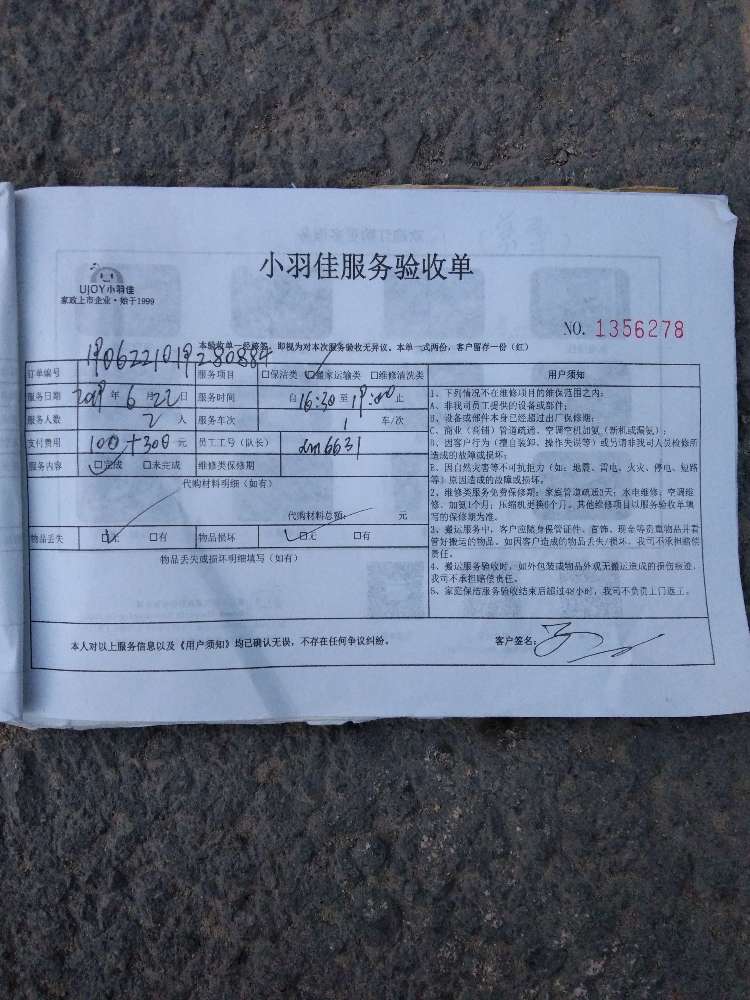 UJOY小羽佳
家政上市企业·始于1999
小羽佳服务验收单
NO. 1356278
本验收单一经签署，即视为对本次服务验收无异议。本单一式两份，客户留存一份（红）
订单编号 服务项目 □保洁类 ☑搬家运输类 □维修清洗类
服务日期 2019年6月22日 服务时间 自16:30至19:00止
服务人数 2人 服务车次 1 车/次
支付费用 100+300元 员工工号（队长） dm6631
服务内容 ☑完成 □未完成 维修类保修期
代购材料明细（如有）
代购材料总额： 元
物品丢失 ☑无 □有 物品损坏 ☑无 □有
物品丢失或损坏明细填写（如有）
用户须知
1、下列情况不在维修项目的维保范围之内：
A、非我司员工提供的设备或部件；
B、设备或部件本身已经超过出厂保修期；
C、商业（商铺）管道疏通、空调空机加氨（新机或漏氨）；
D、因客户行为（擅自装卸、操作失误等）或另请非我司人员检修所
造成的故障或损坏；
E、因自然灾害等不可抗拒力（如：地震、雷电、火灾、停电、短路
等）原因造成的故障或损坏。
2、维修类服务免费保修期：家庭管道疏通3天；水电维修；空调维
修、加氨1个月；压缩机更换6个月。其他维修项目以服务验收单填
写的保修期为准。
3、搬运服务中，客户应随身保管证件、首饰、现金等贵重物品并看
管好搬运的物品。如因客户造成的物品丢失/损坏，我司不承担赔偿
责任。
4、搬运服务验收时，如外包装或物品外观无搬运造成的损伤痕迹，
我司不承担赔偿责任。
5、家庭保洁服务验收结束后超过48小时，我司不负责上门返工。
本人对以上服务信息以及《用户须知》均已确认无误，不存在任何争议纠纷。
客户签名：